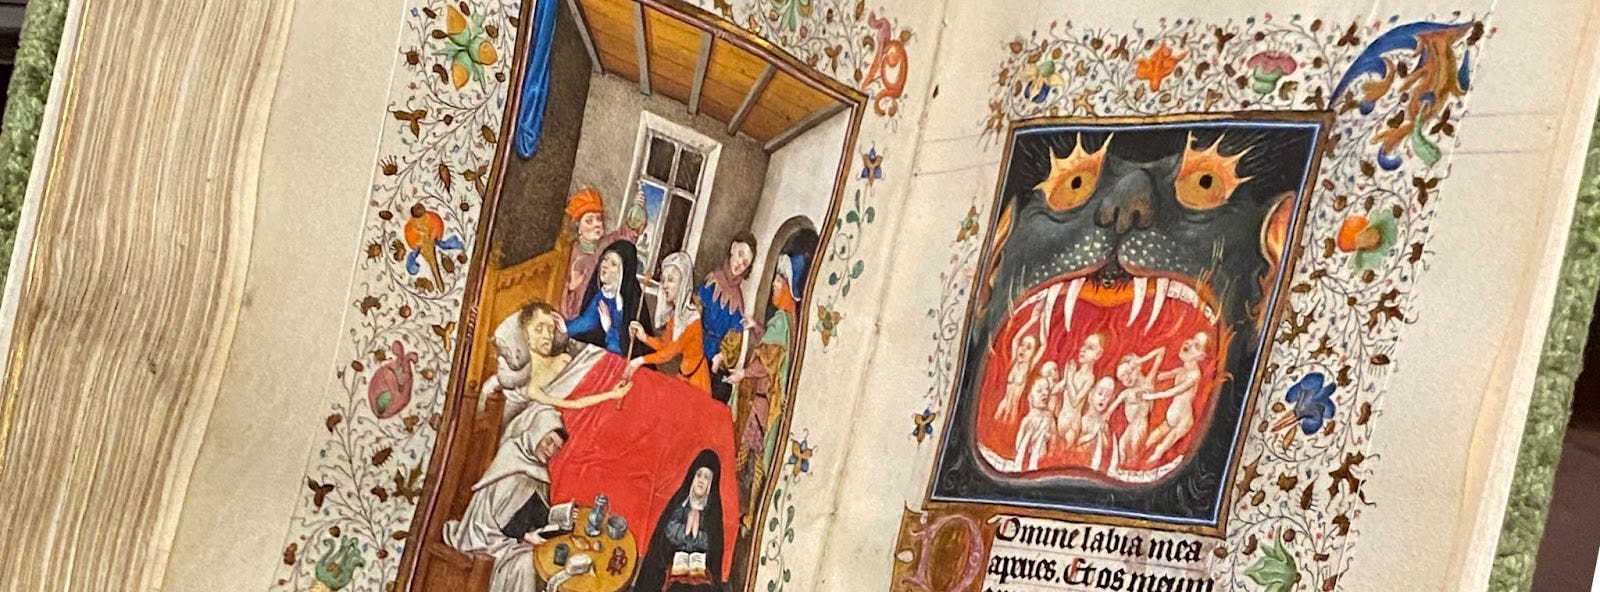 Domine labia mea
aperies. Et os meum